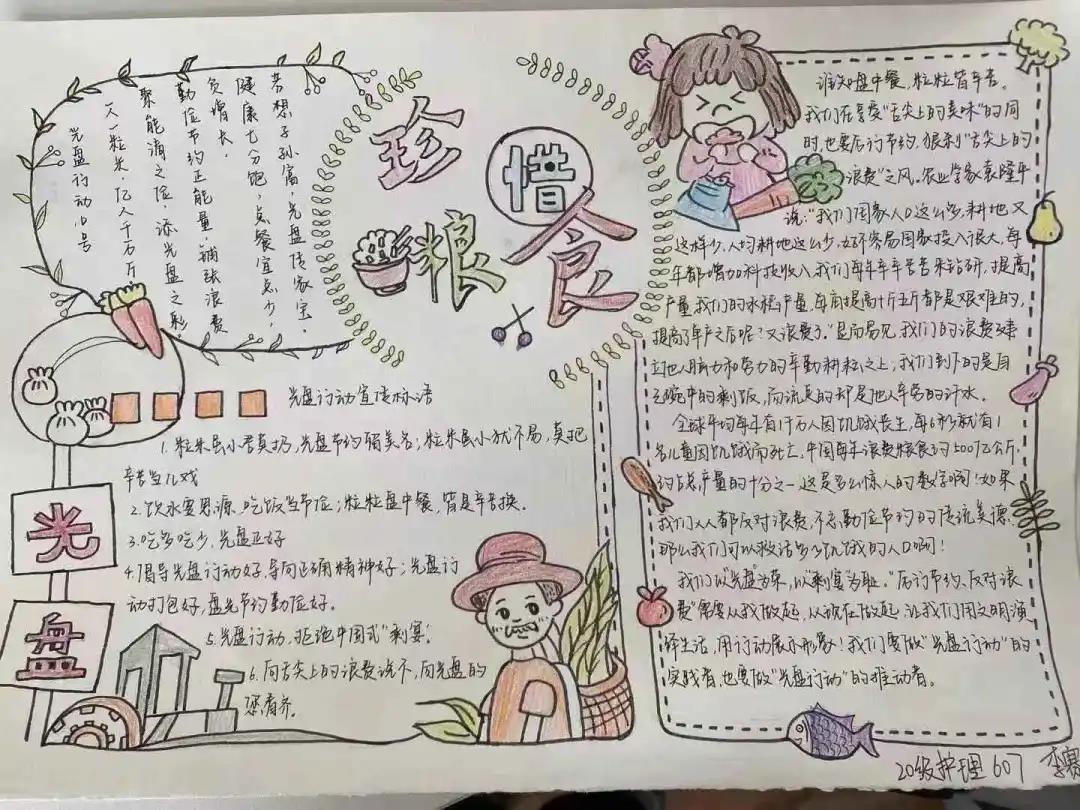 光盘行动口号
人一粒米,亿人千万斤
聚能涓之俭,添光盘之彩。
勤俭节约正能量,铺张浪费
负增长。
健康七分饱,点餐宜点少,
若想子孙富,光盘传家宝。
珍惜
粮食
谁知盘中餐,粒粒皆辛苦。
我们在享受“舌尖上的美味”的同
时,也要厉行节约,狠刹“舌尖上的
浪费”之风。农业学家袁隆平
说:“我们国家人口这么多,耕地又
这样少,人均耕地这么少,好不容易国家投入很大,每
年都增加科技收入,我们每年辛辛苦苦来钻研,提高
产量,我们的水稻产量,每亩提高十斤五斤都是艰难的,
提高了年产之后呢?又浪费了。”显而易见,我们的浪费建
立他人脑力和劳力的辛勤耕耘之上;我们剩下的是自
己碗中的剩饭,而流走的却是他人辛劳的汗水。
全球平均每年有1千万人因饥饿丧生,每6秒就有1
名儿童因饥饿而死亡,中国每年浪费粮食约500亿公斤,
约占总产量的十分之一,这是多么惊人的数字啊!如果
我们人人都反对浪费,不忘勤俭节约的传统美德,
那么我们可以救活多少饥饿的人口啊!
我们以“光盘”为荣,以“剩宴”为耻。“厉行节约,反对浪
费”需要从我做起,从现在做起,让我们用文明演
绎生活,用行动展示形象!我们要做“光盘行动”的
实践者,也要做“光盘行动”的推动者。
光盘行动宣传标语
1.粒米虽小君莫扔,光盘节约留美名;粒米虽小犹不易,莫把
辛苦当儿戏
2.饮水要思源,吃饭当节俭;粒粒盘中餐,皆是辛苦换。
3.吃多吃少,光盘正好
4.倡导光盘行动好,导向正确精神好;光盘行
动打包好,盘光节约勤俭好。
5.光盘行动,拒绝中国式“剩宴”。
6.向舌尖上的浪费说不,向光盘的
您看齐。
光
盘
20级护理607 李赛